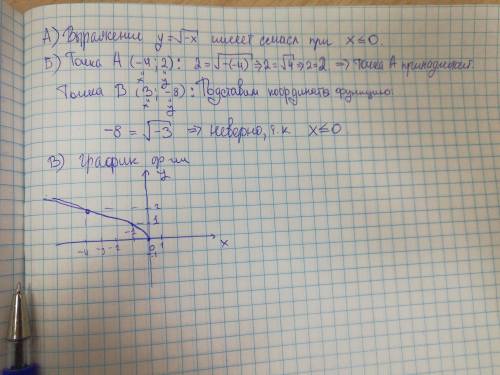 А) Выражение y=√-x имеет смысл при x≤0.
Б) Точка А (-4; 2): 2=√-(-4) => 2=√4 => 2=2 => точка А принадлежит.
x y
Точка В (3; -8): Подставим координаты функцию:
x y
-8 = √-3 => неверно, т.к x≤0
В) График ф-ии
y
2
1
-1
-4 -3 -2 0 1 x
-1